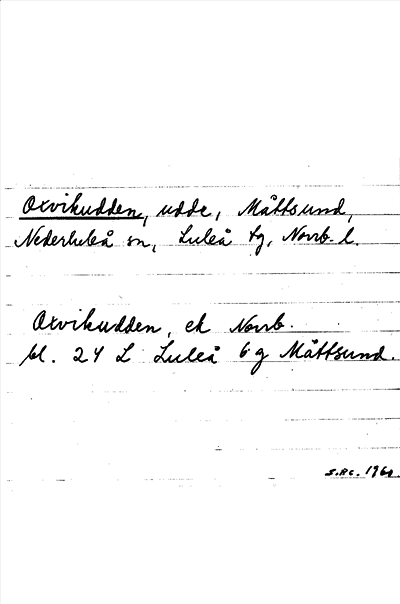 Oxvikudden, udde, Måttsund,
Nederluleå sn, Luleå tg, Norrb. l.
Oxvikudden, ek Norrb.
bl. 24 L Luleå 6 g Måttsund.
1960